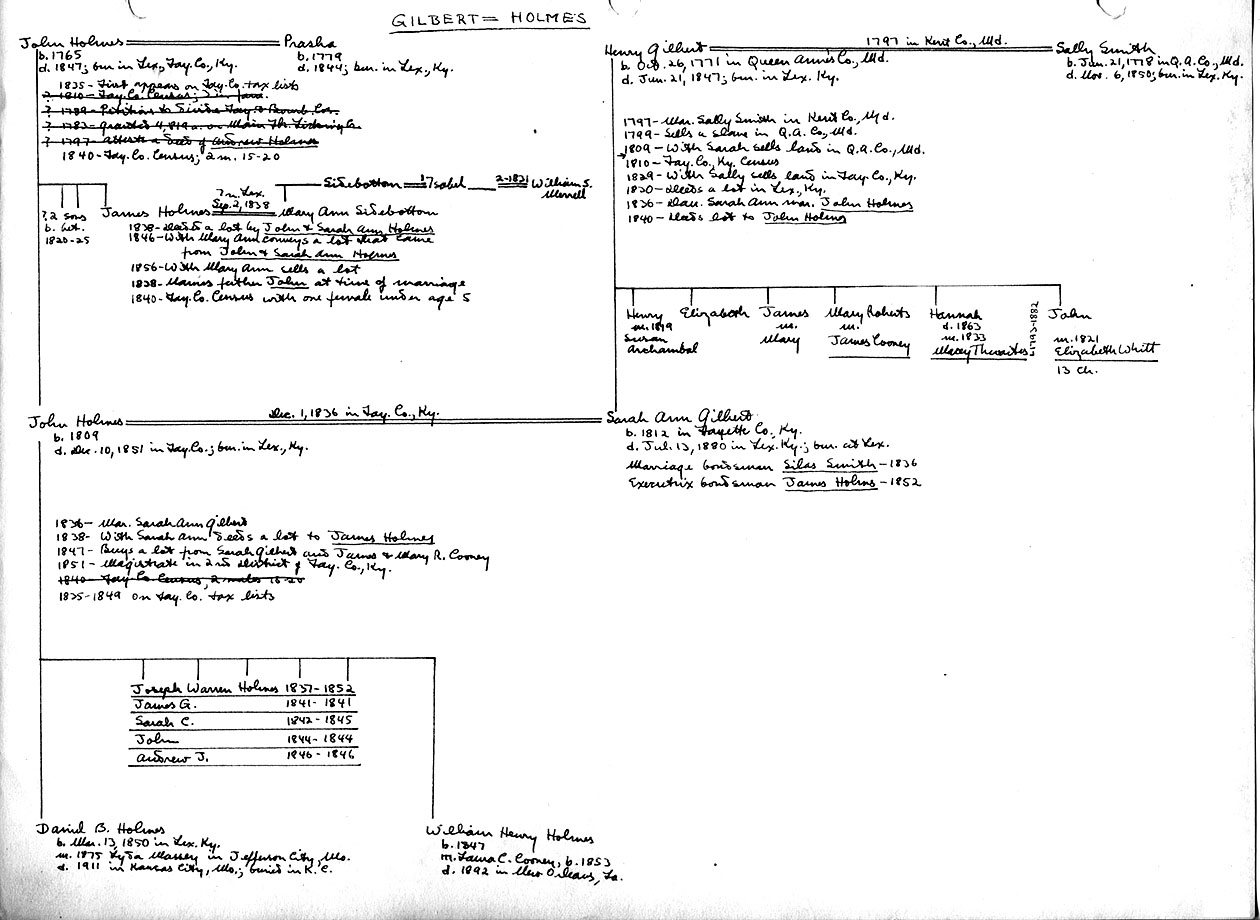 GILBERT = HOLMES
John Holmes
Prasha
b. 1765
b. 1779
d. 1847; bur. in Lex., Fay. Co., Ky.
d. 1844; bur. in Lex., Ky.
1835 - First appears on Fay. Co. tax lists
? 1810 - Fay. Co. Census;
? 1789 - Petitions to divide Fay. & Bourb. Cos.
? 1783 - granted 4,819 a. on Main Fk. Licking R.
? 1797 - attests a deed of Andrew Holmes
1840 - Fay. Co. Census; 2 m. 15-20
Henry Gilbert
1797 in Kent Co., Md.
Sally Smith
b. Oct. 26, 1771 in Queen Annes Co., Md.
d. Jun. 21, 1847; bur. in Lex. Ky.
b. Jan. 21, 1778 in Q.A. Co., Md.
d. Nov. 6, 1850; bur. in Lex. Ky.
1797 - Mar. Sally Smith in Kent Co., Md.
1799 - Sells a slave in Q.A. Co., Md.
1809 - With Sarah sells land in Q.A. Co., Md.
1810 - Fay. Co., Ky. Census
1829 - With Sally sells land in Fay. Co., Ky.
1830 - Deeds a lot in Lex., Ky.
1836 - Dau. Sarah Ann mar. John Holmes
1840 - Deeds lot to John Holmes
Sidebottom = Isabel
2-1821
William S. Merrell
? 2 sons
b. bet.
1820-25
James Holmes
? m. Lex.
Sep. 2, 1838
Mary Ann Sidebottom
1838 - Deeded a lot by John & Sarah Ann Holmes
1846 - With Mary Ann conveys a lot that came
from John & Sarah Ann Holmes
1856 - With Mary Ann sells a lot
1838 - Names father John at time of marriage
1840 - Fay. Co. Census with one female under age 5
Henry
m. 1819
Susan
Archambal
Elizabeth
James
m.
Mary
Mary Roberts
m.
James Cooney
Hannah
d. 1863
m. 1833
Macey Thwaites
1793-1882
John
m. 1821
Elizabeth Whitt
13 ch.
John Holmes
Dec. 1, 1836 in Fay. Co., Ky.
Sarah Ann Gilbert
b. 1809
d. Dec. 10, 1851 in Fay. Co.; bur. in Lex., Ky.
b. 1812 in Fayette Co. Ky.
d. Jul. 13, 1880 in Lex. Ky.; bur. at Lex.
Marriage bondsman Silas Smith - 1836
Executrix bondsman James Holms - 1852
1836 - Mar. Sarah Ann Gilbert
1838 - With Sarah Ann deeds a lot to James Holmes
1847 - Buys a lot from Sarah Gilbert and James & Mary R. Cooney
1851 - Magistrate in 2nd District of Fay. Co., Ky.
1840 - Fay. Co. Census, 2 males 15-20
1835-1849 on Fay. Co. tax lists
Joseph Warren Holmes 1837-1852
James G. 1841-1841
Sarah C. 1842-1845
John 1844-1844
Andrew J. 1846-1846
Daniel B. Holmes
b. Mar. 13, 1850 in Lex. Ky.
m. 1875 Lyda Massey in Jefferson City, Mo.
d. 1911 in Kansas City, Mo.; buried in K.C.
William Henry Holmes
b. 1847
m. Laura C. Cooney, b. 1853
d. 1892 in New Orleans, La.